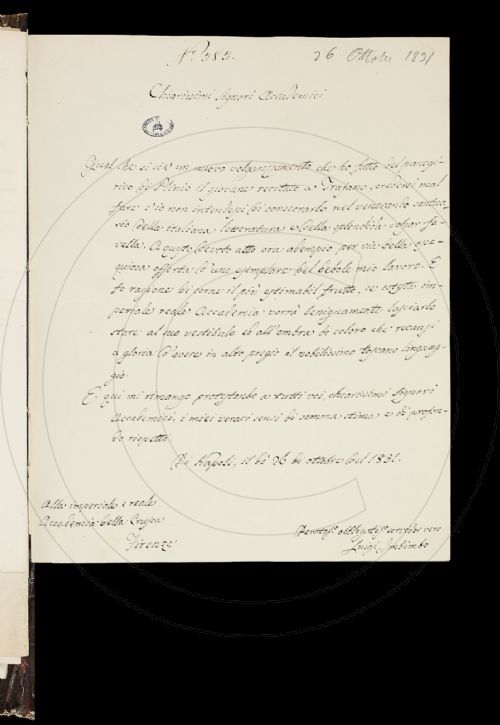 N.º 383. 26 Ottobre 1831
Chiarissimi Signori Accademici
Qual che si sia un nuovo volgarizzamento che ho fatto del panegi-
rico di Plinio il giovane recitato a Traiano, crederei mal
fare s'io non intendessi di consecrarlo nel venerando santua-
rio della italiana letteratura e della splendida
vella. A questo devoto atto ora adempio per via della
offerta d'un esemplare del debole mio lavoro. E
fo ragione di torne il più estimabil frutto, se cotesta im-
periale reale Accademia vorrà benignamente lasciarlo
stare al suo vestibulo ed all'ombra di coloro che recansi
a gloria d'avere in alto pregio il nobilissimo toscano linguag-
gio.
E qui mi rimango protestando a tutti voi, chiarissimi signori
Accademici, i miei veraci sensi di somma stima e di profon-
do rispetto.
Di Napoli, il dì 26 di ottobre del 1831.
Alla imperiale e reale
Accademia della Crusca
Firenze
Devotiss. obbligatiss. servidor vero
Luigi